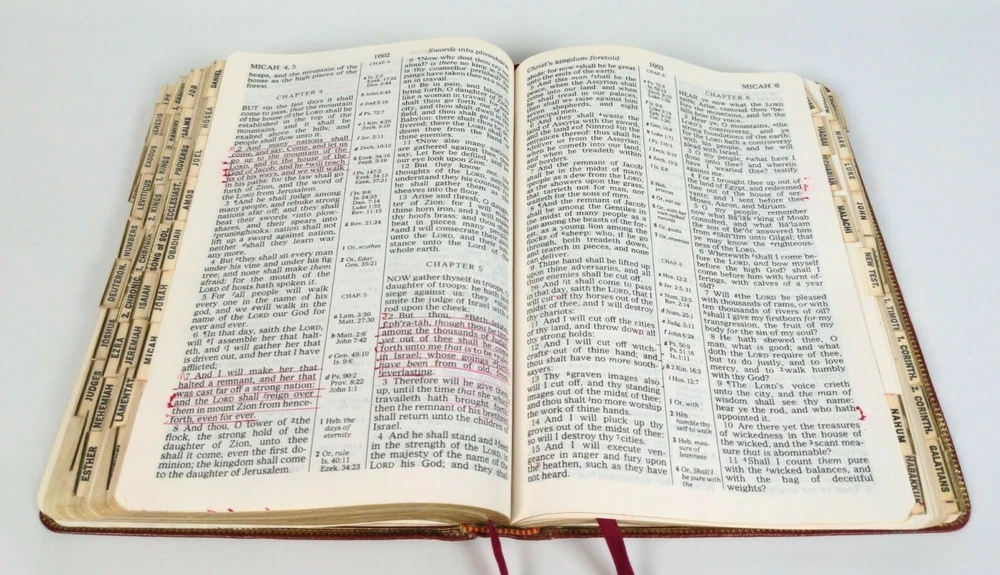 MICAH 4, 5
1002
Swords into plowshares
heaps, and the mountain of the
house as the high places of the
forest.
CHAPTER 4
BUT in the last days it shall
come to pass, that the mountain
of the house of the LORD shall be
established in the top of the
mountains, and it shall be
exalted above the hills; and
people shall flow unto it.
2 And many nations shall
come, and say, Come, and let us
go up to the mountain of the
LORD, and to the house of the
God of Jacob; and he will teach
us of his ways, and we will walk
in his paths: for the law shall go
forth of Zion, and the word of
the LORD from Jerusalem.
3 And he shall judge among
many people, and rebuke strong
nations afar off; and they shall
beat their swords into plow-
shares, and their spears into
pruninghooks: nation shall not
lift up a sword against nation,
neither shall they learn war
any more.
4 But they shall sit every man
under his vine and under his fig
tree; and none shall make them
afraid: for the mouth of the
LORD of hosts hath spoken it.
5 For all people will walk
every one in the name of his
god, and we will walk in the
name of the LORD our God for
ever and ever.
6 In that day, saith the LORD,
will I assemble her that halt-
eth, and I will gather her that
is driven out, and her that I have
afflicted;
7 And I will make her that
halted a remnant, and her that
was cast far off a strong nation:
and the LORD shall reign over
them in mount Zion from hence-
forth, even for ever.
8 And thou, O tower of the
flock, the strong hold of the
daughter of Zion, unto thee
shall it come, even the first do-
minion; the kingdom shall come
to the daughter of Jerusalem.
CHAP. 4
b John 6:45
c Joel 3:10
d Ps. 72:7
e 1 Kin. 4:25
Zech. 3:10
f Jer. 2:11
g Zech. 10:12
h Ezek. 34:16
Zeph. 3:19
i Ps. 147:2
Ezek. 34:13
Ezek. 37:21
j Is. 9:6
Is. 24:23
Dan. 7:14
Luke 1:33
Rev. 11:15
k Rev. 21:24
1 Or, scythes
2 Or, Edar
Gen. 35:21
CHAP. 5
a Lam. 3:30
Matt. 27:30
b Matt. 2:6
John 7:42
c Gen. 49:10
Is. 9:6
d Ps. 90:2
Prov. 8:22
John 1:1
1 Heb. the
days of
eternity
2 Or, rule
Is. 40:11
Ezek. 34:23
9 Now why dost thou cry out
aloud? is there no king in thee?
is thy counsellor perished? for
pangs have taken thee as a woman
in travail.
10 Be in pain, and labour to
bring forth, O daughter of Zion,
like a woman in travail: for now
shalt thou go forth out of the city,
and thou shalt go even to
Babylon; there shalt thou be
delivered; there the LORD shall
redeem thee from the hand of
thine enemies.
11 Now also many nations
are gathered against thee, that
say, Let her be defiled, and let
our eye look upon Zion.
12 But they know not the
thoughts of the LORD, neither
understand they his counsel: for
he shall gather them as the
sheaves into the floor.
13 Arise and thresh, O daughter
of Zion: for I will make
thine horn iron, and I will make
thy hoofs brass: and thou shalt
beat in pieces many people:
and I will consecrate their gain
unto the LORD, and their sub-
stance unto the Lord of the
whole earth.
CHAPTER 5
NOW gather thyself in troops, O
daughter of troops: he hath laid
siege against us: they shall
smite the judge of Israel with a
rod upon the cheek.
2 But thou, Beth-lehem
Eph'ra-tah, though thou be little
among the thousands of Judah,
yet out of thee shall he come
forth unto me that is to be ruler
in Israel; whose goings forth
have been from of old, from
everlasting.
3 Therefore will he give them
up, until the time that she which
travaileth hath brought forth:
then the remnant of his brethren
shall return unto the children of
Israel.
4 And he shall stand and feed
in the strength of the LORD, in
the majesty of the name of the
LORD his God; and they shall
Christ's kingdom foretold
1003
MICAH 6
abide: for now shall he be great
unto the ends of the earth.
5 And this man shall be the
peace, when the Assyrian shall
come into our land: and when
he shall tread in our palaces,
then shall we raise against him
seven shepherds, and eight
principal men.
6 And they shall waste the
land of Assyria with the sword,
and the land of Nimrod in the
entrances thereof: thus shall he
deliver us from the Assyrian,
when he cometh into our land,
and when he treadeth within
our borders.
7 And the remnant of Jacob
shall be in the midst of many
people as a dew from the LORD,
as the showers upon the grass,
that tarrieth not for man, nor
waiteth for the sons of men.
8 And the remnant of Jacob
shall be among the Gentiles in
the midst of many people as a
lion among the beasts of the for-
est, as a young lion among the
flocks of sheep: who, if he go
through, both treadeth down,
and teareth in pieces, and none
can deliver.
9 Thine hand shall be lifted up
upon thine adversaries, and all
thine enemies shall be cut off.
10 And it shall come to pass
in that day, saith the LORD, that I
will cut off thy horses out of the
midst of thee, and I will destroy
thy chariots:
11 And I will cut off the cities
of thy land, and throw down all
thy strong holds:
12 And I will cut off witch-
crafts out of thine hand; and
thou shalt have no more sooth-
sayers:
13 Thy graven images also
will I cut off, and thy standing
images out of the midst of thee;
and thou shalt no more worship
the work of thine hands.
14 And I will pluck up thy
groves out of the midst of thee:
so will I destroy thy cities.
15 And I will execute ven-
geance in anger and fury upon
the heathen, such as they have
not heard.
CHAP. 6
a Hos. 12:2
b Jer. 2:5, 31
c Num. 22:5
d Num. 25:1
e Judg. 5:11
f John 6:28
g Ps. 50:9
Ps. 51:16
Is. 1:11
h 2 Kin. 16:3
i Hos. 12:7
1 Or, with
2 Heb.
humble thy
self to walk
3 Heb. mea-
sure of
leanness
4 Or, Shall I
be pure with
the
CHAPTER 6
HEAR ye now what the LORD
saith; Arise, contend thou be-
fore the mountains, and let the
hills hear thy voice.
2 Hear ye, O mountains, the
LORD'S controversy, and ye
strong foundations of the earth:
for the LORD hath a controversy
with his people, and he will
plead with Israel.
3 O my people, what have I
done unto thee? and wherein
have I wearied thee? testify
against me.
4 For I brought thee up out of
the land of Egypt, and redeemed
thee out of the house of ser-
vants; and I sent before thee
Moses, Aaron, and Miriam.
5 O my people, remember
now what Bā'lăk king of Moab
consulted, and what Bā'laam
the son of Bē'ôr answered him
from Shit'tim unto Gilgal; that
ye may know the righteous-
ness of the LORD.
6 Wherewith shall I come be-
fore the LORD, and bow myself
before the high God? shall I
come before him with burnt of-
ferings, with calves of a year
old?
7 Will the LORD be pleased
with thousands of rams, or with
ten thousands of rivers of oil?
shall I give my firstborn for my
transgression, the fruit of my
body for the sin of my soul?
8 He hath shewed thee, O
man, what is good; and what
doth the LORD require of thee,
but to do justly, and to love
mercy, and to walk humbly
with thy God?
9 The LORD'S voice crieth
unto the city, and the man of
wisdom shall see thy name:
hear ye the rod, and who hath
appointed it.
10 Are there yet the treasures
of wickedness in the house of
the wicked, and the scant mea-
sure that is abominable?
11 Shall I count them pure
with the wicked balances, and
with the bag of deceitful
weights?
GENESIS
EXODUS
LEVITICUS
NUMBERS
DEUTERON.
JOSHUA
JUDGES
2 KINGS
2 CHRONIC.
EZRA
NEHEMIAH
ESTHER
JOB
PSALMS
PROVERBS
ECCLESIAST.
SONG of SOL.
ISAIAH
JEREMIAH
LAMENTAT.
DANIEL
HOSEA
JOEL
AMOS
OBADIAH
JONAH
MICAH
NAHUM
HABAKKUK
MALACHI
NEW TEST.
MARK
LUKE
JOHN
1. CORINTH.
GALATIANS
1. TIMOTH.